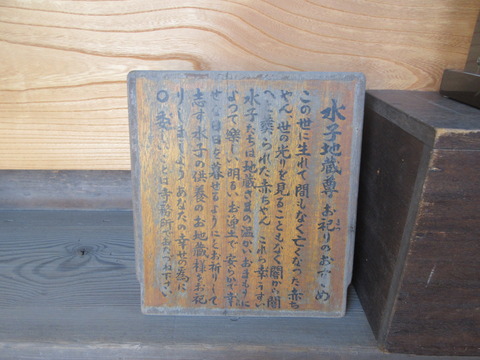 水子地蔵尊 お祀りのおすすめ
この世に生れて間もなく亡くなった赤ち
ゃん、世の光りを見ることもなく闇から闇
へと葬られた赤ちゃん これら幸うすい
水子たちは地蔵さまの温かいお手もとに
よって楽しい明るいお浄土で安らかで幸
せな日日を暮せるようにとお祈りして
志す水子の供養のお地蔵様をお祀
りしましょう あなたの幸せの為に
〇委しいことは寺務所でおたづね下さい